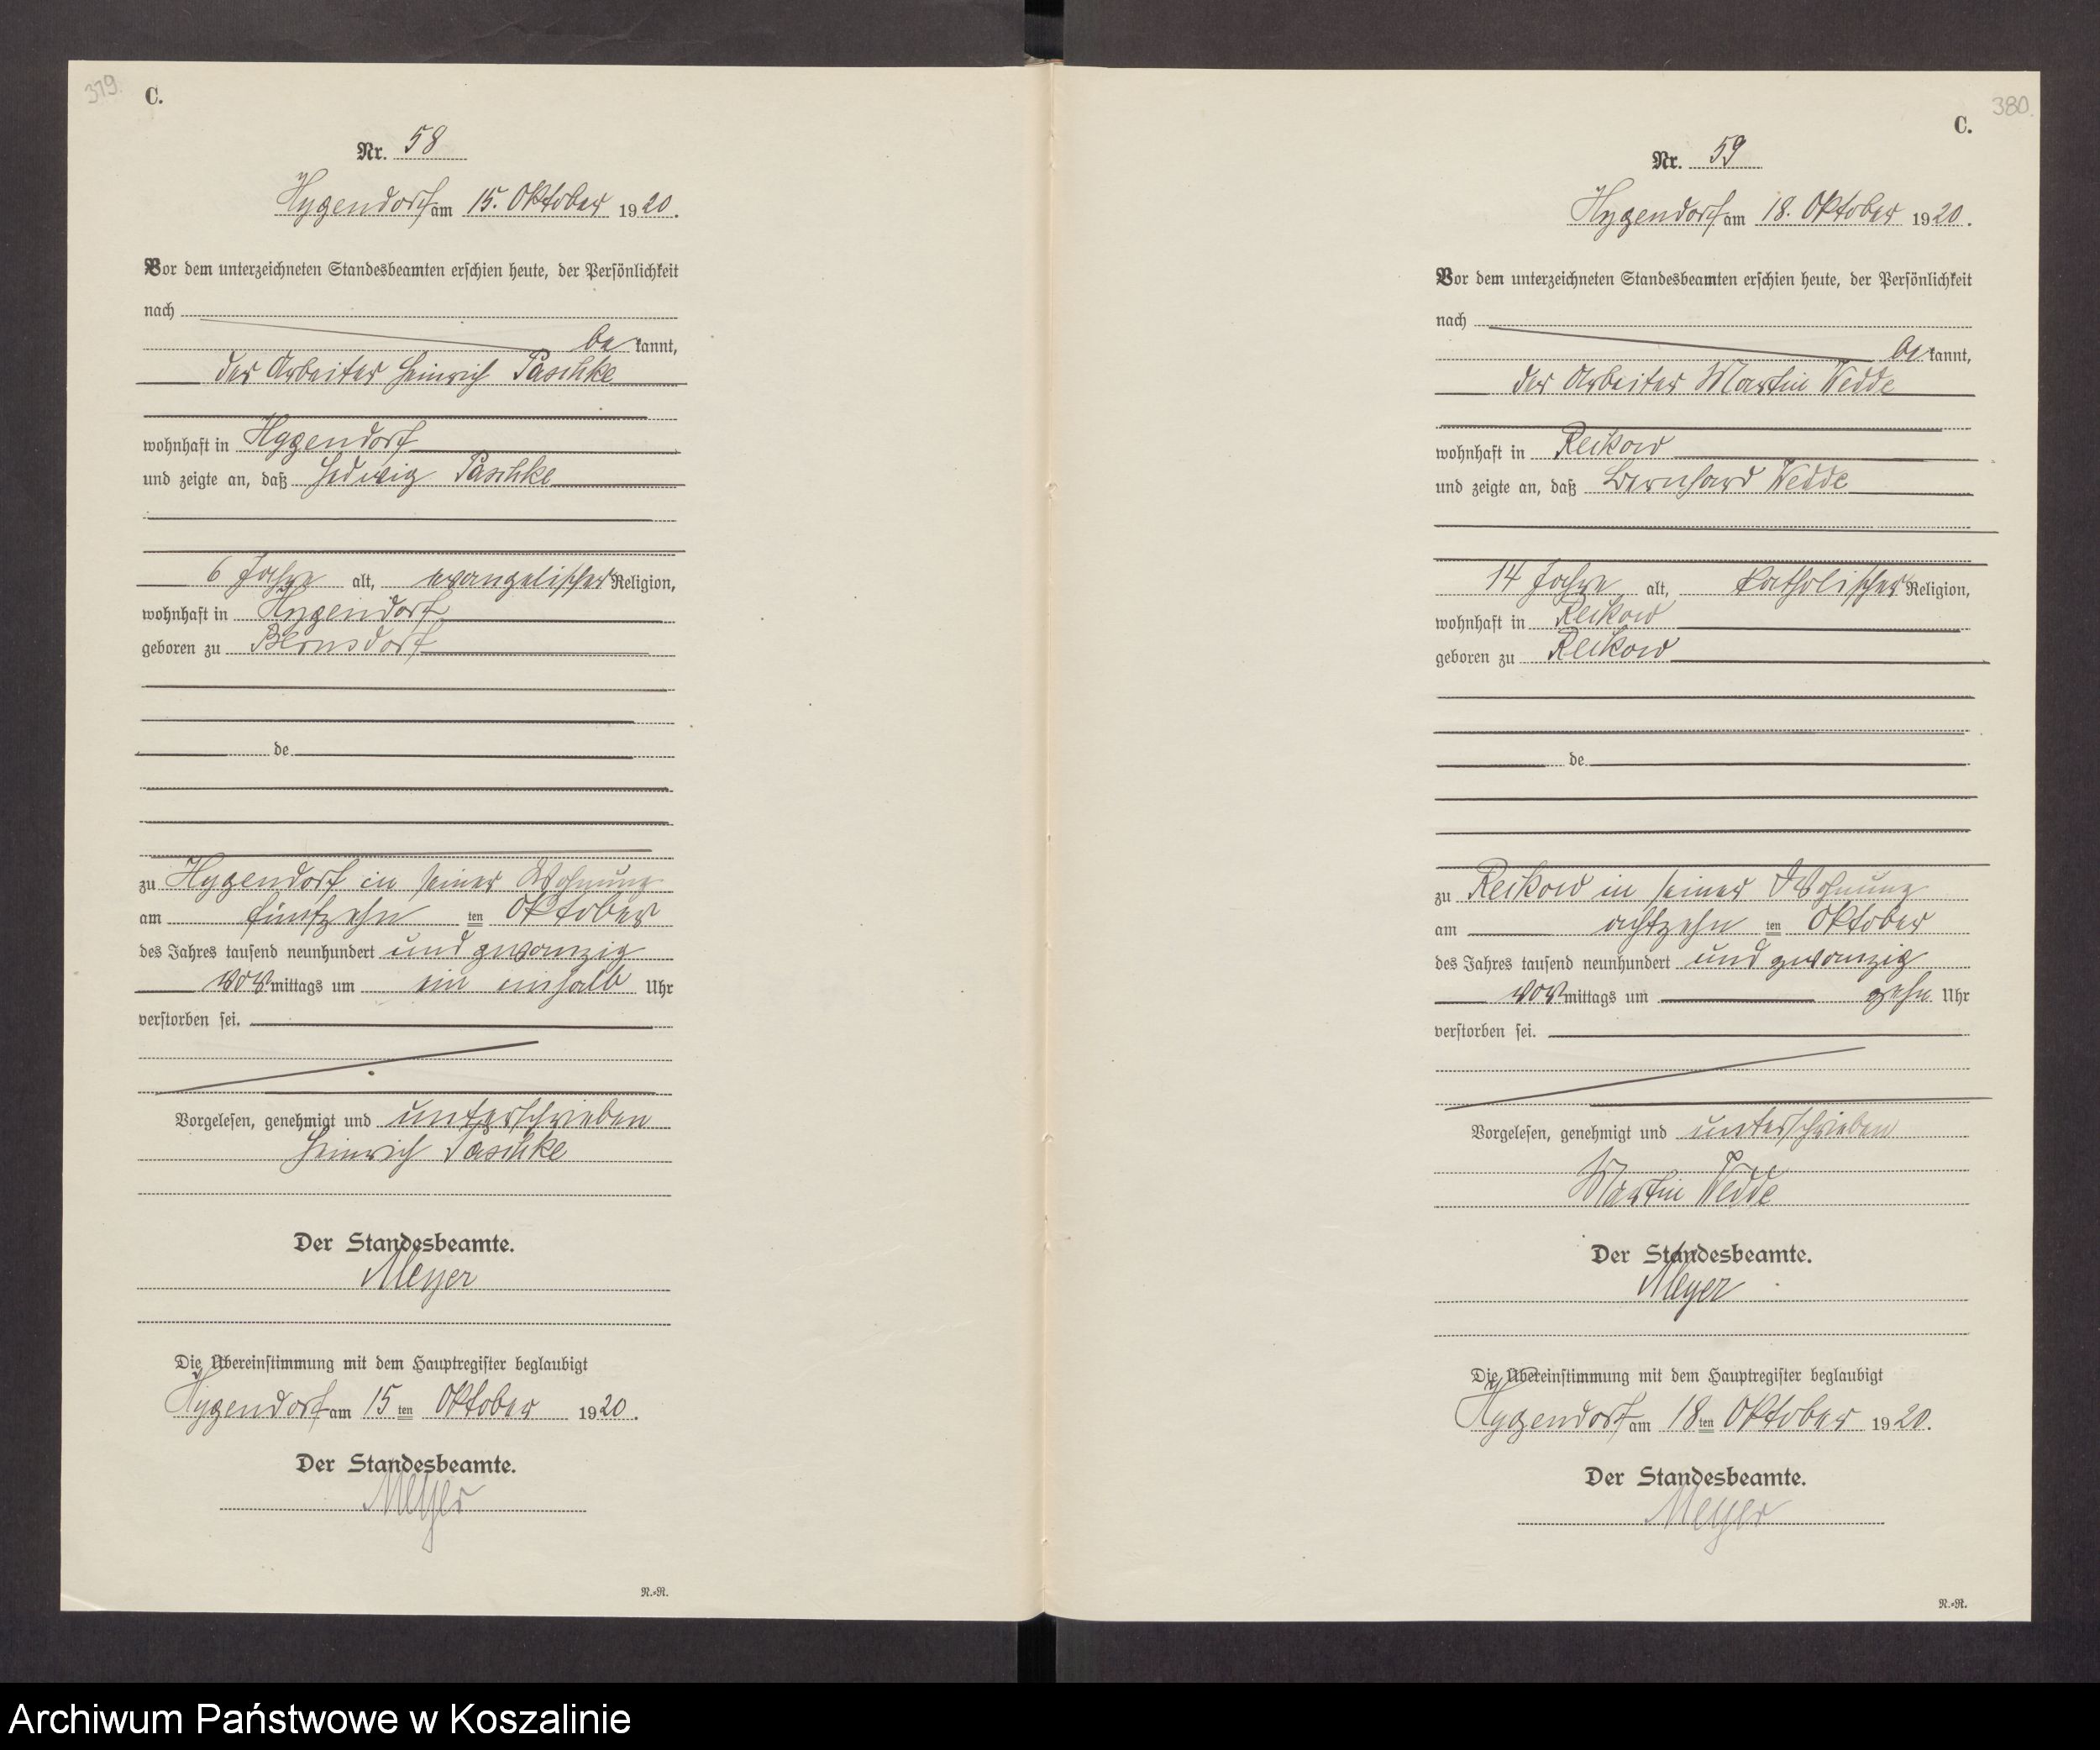 379.
C.
Nr. 58
Hygendorf am 15. Oktober 1920.
Vor dem unterzeichneten Standesbeamten erschien heute, der Persönlichkeit
nach
be kannt,
der Arbeiter Heinrich Paschke
wohnhaft in Hygendorf
und zeigte an, daß Hedwig Paschke
6 Jahre alt, evangelischer Religion,
wohnhaft in Hygendorf
geboren zu Bernsdorf
de
zu Hygendorf in seiner Wohnung
am fünfzehn ten Oktober
des Jahres tausend neunhundert und zwanzig
vor mittags um ein einhalb Uhr
verstorben sei.
Vorgelesen, genehmigt und unterschrieben
Heinrich Paschke
Der Standesbeamte.
Meyer
Die Übereinstimmung mit dem Hauptregister beglaubigt
Hygendorf am 15 ten Oktober 1920.
Der Standesbeamte.
Meyer
N.-R.
380.
C.
Nr. 59
Hygendorf am 18. Oktober 1920.
Vor dem unterzeichneten Standesbeamten erschien heute, der Persönlichkeit
nach
be kannt,
der Arbeiter Martin Wedde
wohnhaft in Reikow
und zeigte an, daß Bernhard Wedde
14 Jahre alt, katholischer Religion,
wohnhaft in Reikow
geboren zu Reikow
de
zu Reikow in seiner Wohnung
am achtzehn ten Oktober
des Jahres tausend neunhundert und zwanzig
vor mittags um zehn Uhr
verstorben sei.
Vorgelesen, genehmigt und unterschrieben
Martin Wedde
Der Standesbeamte.
Meyer
Die Übereinstimmung mit dem Hauptregister beglaubigt
Hygendorf am 18 ten Oktober 1920.
Der Standesbeamte.
Meyer
N.-R.
Archiwum Państwowe w Koszalinie